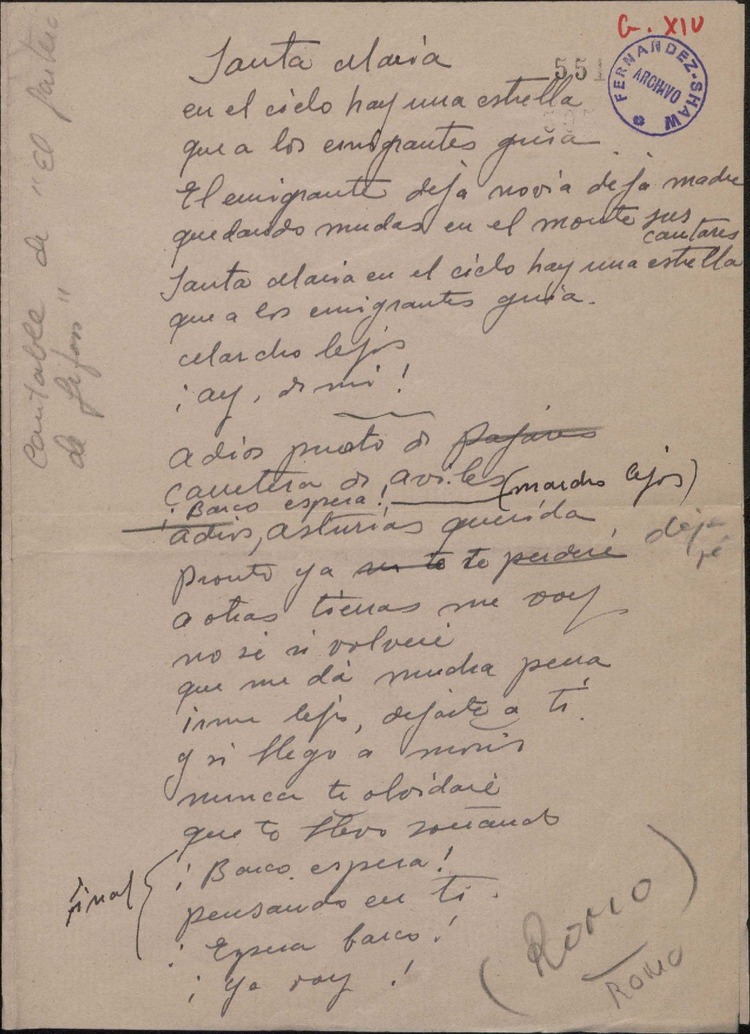 G. XIV
FERNANDEZ-SHAW
ARCHIVO
55
Cantable de "El
de Gijon"
Santa Maria
en el cielo hay una estrella
que a los emigrantes guia
El emigrante deja novia deja madre
quedando mudas en el monte sus
cantares
Santa Maria en el cielo hay una estrella
que a los emigrantes guia.
Marcho lejos
¡ay, de mi!
Adios puerto de Pajares
carretera de aviles
¡Barco espera! (marcho lejos)
adios, asturias querida
pronto ya te perderé dejaré
a otras tierras me voy
no sé si volveré
que me dá mucha pena
irme lejos, dejarte a ti.
y si llego a morir
nunca te olvidaré
que te llevo soñando
final
¡Barco espera!
pensando en ti.
¡Espera barco!
¡Ya voy!
(Romo)
Romo